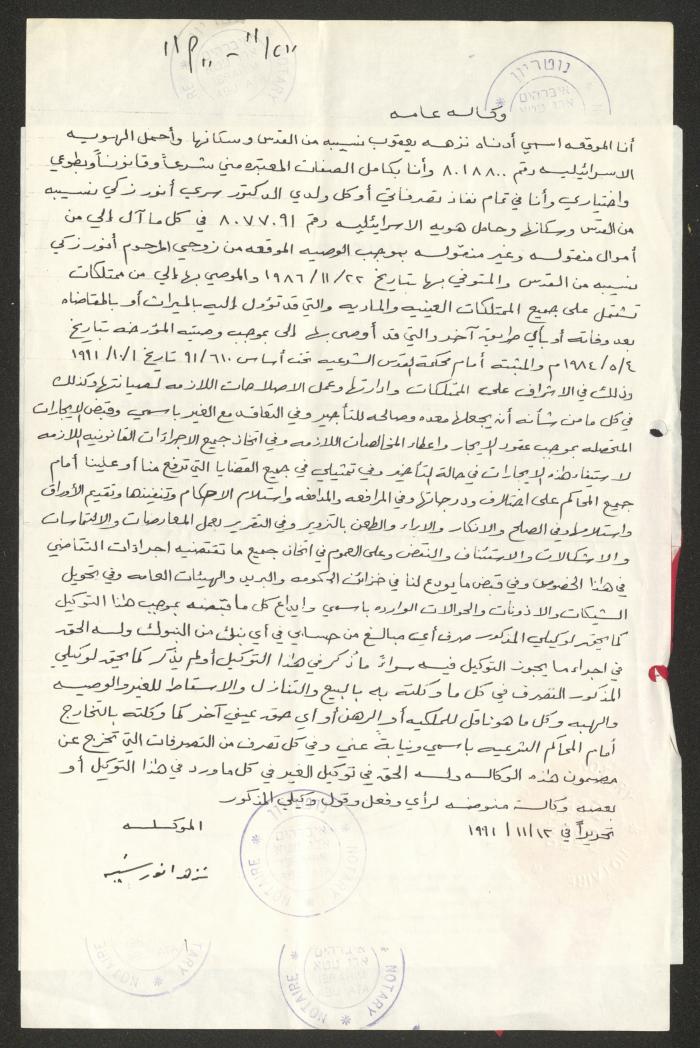 וו/כוו - ״ק וו
נוטריון
איברהים
NOTARY
وكاله عامه
أنا الموقعه اسمي أدناه نزهه يعقوب نسيبه من القدس وسكانها وأحمل الهويه
الاسرائيليه رقم ٨٠١٨٨٠٠ وأنا بكامل الصفات المعتبره مني شرعاً وقانوناً وبطوعي
واختياري وأنا في تمام نفاذ تصرفاتي أوكل ولدي الدكتور سري أنور زكي نسيبه
من القدس وسكانها وحامل هويه الاسرائيليه رقم ٨٠٧٧٠٩١ في كل ما آل الي من
أموال منقوله وغير منقوله بموجب الوصيه الموقعه من زوجي المرحوم أنور زكي
نسيبه من القدس والمتوفي بها بتاريخ ١٩٨٦/١١/٢٢ والموصي بها الي من ممتلكات
تشتمل على جميع الممتلكات العينيه والماديه والتي قد تؤول إليه بالميراث أو بالمقاضاه
بعد وفاته أو بأي طريقة آخر والتي قد أوصى بها الى بموجب وصيته المؤرخه بتاريخ
١٩٨٤/٥/٤ م والمثبته أمام محكمة القدس الشرعيه تحت أساس ٩١/٦١٠ تاريخ ١٩٩١/١٠/١
وذلك في الاشراف على الممتلكات وادارتها وعمل الاصلاحات اللازمه لصيانتها وكذلك
في كل ما من شأنه أن يجعلها معده وصالحه للتأجير وفي التعاقد مع الغير باسمي وقبض الايجارات
المتحصله بموجب عقود الايجار واعطاء المخالصات اللازمه وفي اتخاذ جميع الاجراءات القانونيه اللازمه
لاستيفاء هذه الايجارات في حالة التأخير وفي تمثيلي في جميع القضايا التي ترفع منا أو علينا أمام
جميع المحاكم على اختلاف درجاتها وفي المرافعه والمدافعه واستلام الاحكام وتنفيذها وتقديم الأوراق
واستلامها وفي الصلح والانكار والابراء والطعن بالتزوير وفي التقرير بعمل المعارضات والالتماسات
والاشكالات والاستئناف والنقض وعلى العموم في اتخاذ جميع ما تقتضيه اجراءات التقاضي
في هذا الخصوص وفي قبض ما يودع لنا في خزائن الحكومه والبريد والهيئات العامه وفي تحويل
الشيكات والاذونات والحوالات الوارده باسمي وايداع كل ما قبضه بموجب هذا التوكيل
كما يحق لوكيلي المذكور صرف أي مبالغ من حسابي في أي بنك من البنوك وله الحق
في اجراء ما يجوز التوكيل فيه سواءً ما ذُكر في هذا التوكيل أو لم يذكر كما يحق لوكيلي
المذكور التصرف في كل ما وكلته به بالبيع والتنازل والاسقاط للغير والوصيه
والهبه وكل ما هو ناقل للملكيه أو الرهن أو أي حق عيني آخر كما وكلته بالتخارج
أمام المحاكم الشرعيه باسمي ونيابة عني وفي كل تصرف من التصرفات التي تخرج عن
مضمون هذه الوكاله وله الحق في توكيل الغير في كل ما ورد في هذا التوكيل أو
بعضه وكالة مفوضه لرأي وفعل وقول وكيلي المذكور
تحريراً في ١٩٩١/١١/١٣
الموكله
نزهه انور نسيبه
נוטריון
NOTAIRE * NOTARY
TARY * NOTAIRE
איברהים
אבו עטא
IBRAHIM
ABU ATA
NOTAIRE * NOTARY